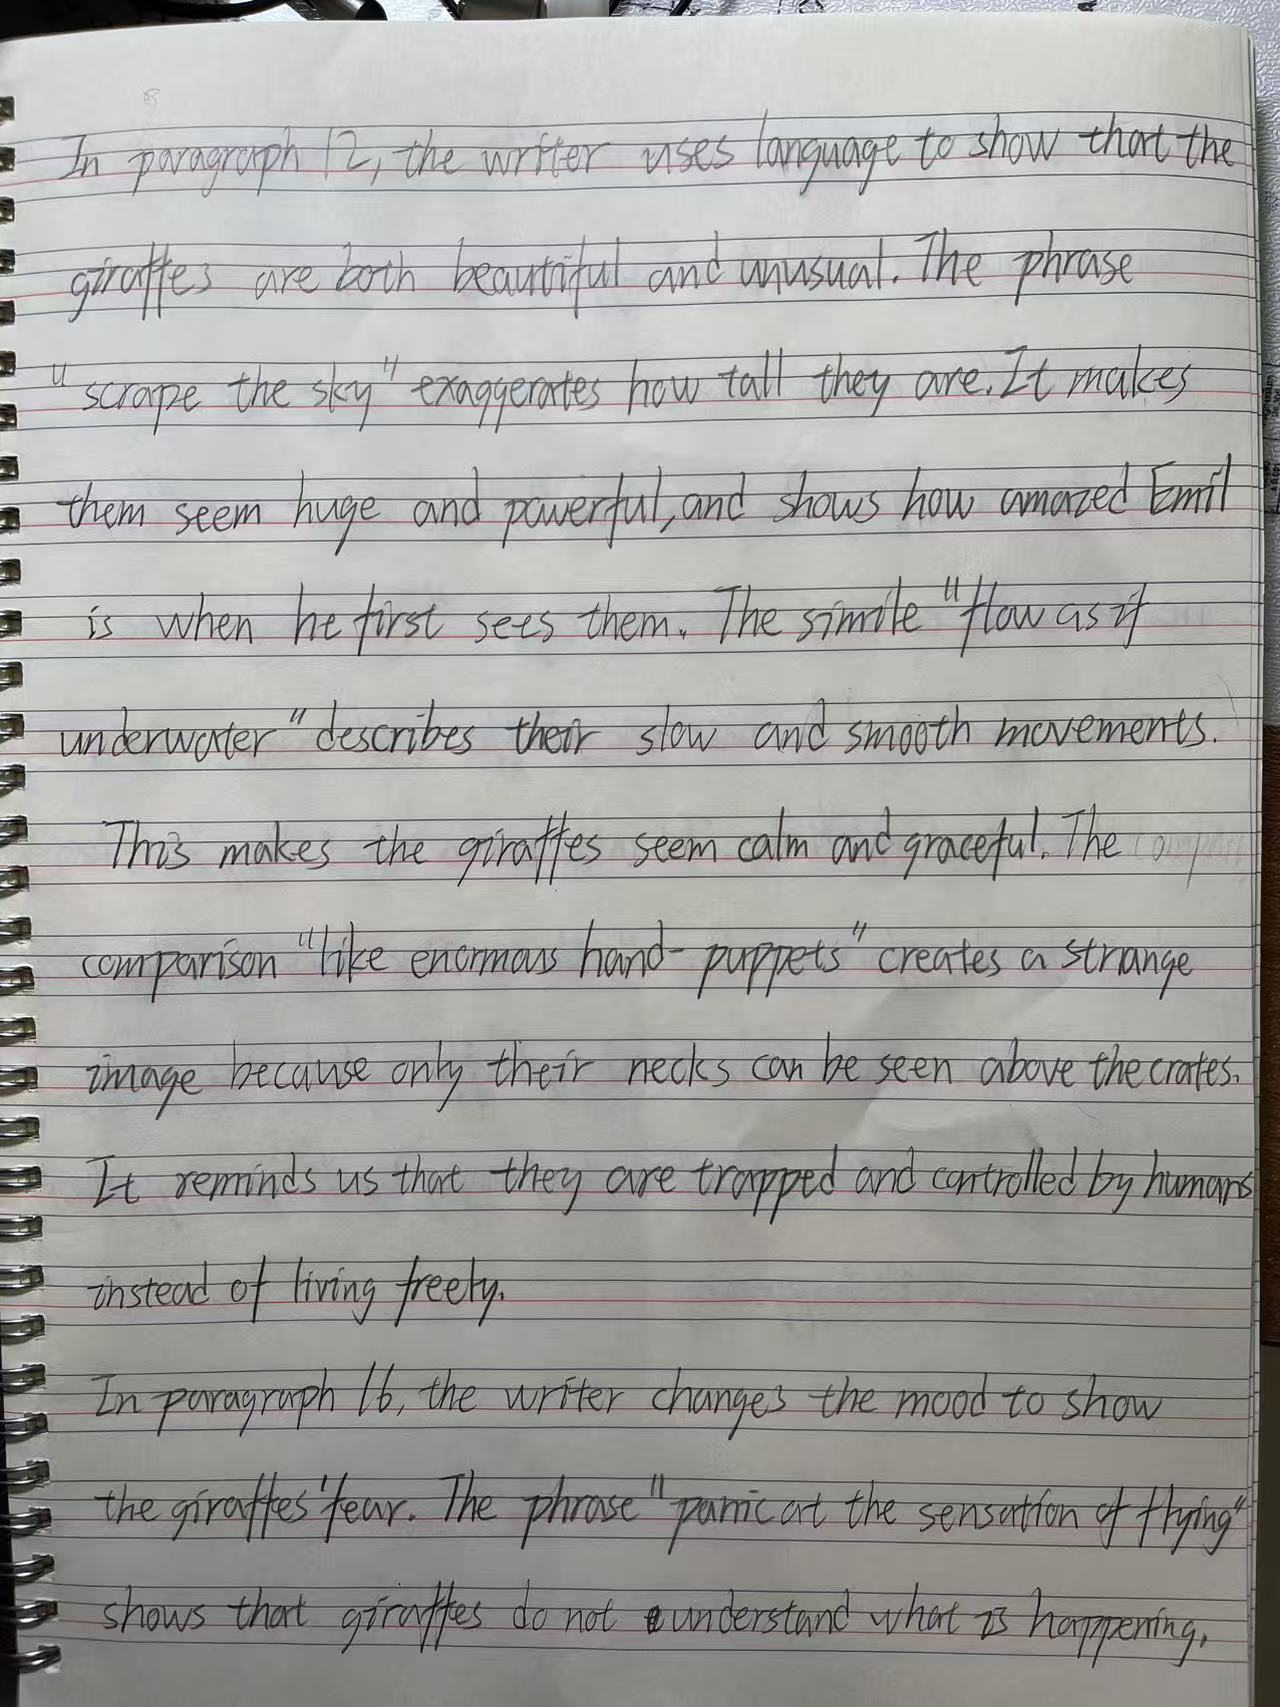 In paragraph 12, the writer uses language to show that the
giraffes are both beautiful and unusual. The phrase
"scrape the sky" exaggerates how tall they are. It makes
them seem huge and powerful, and shows how amazed Emil
is when he first sees them. The simile "flow as if
underwater" describes their slow and smooth movements.
This makes the giraffes seem calm and graceful. The
comparison "like enormous hand-puppets" creates a strange
image because only their necks can be seen above the crates.
It reminds us that they are trapped and controlled by humans
instead of living freely.
In paragraph 16, the writer changes the mood to show
the giraffes' fear. The phrase "panic at the sensation of flying"
shows that giraffes do not understand what is happening.